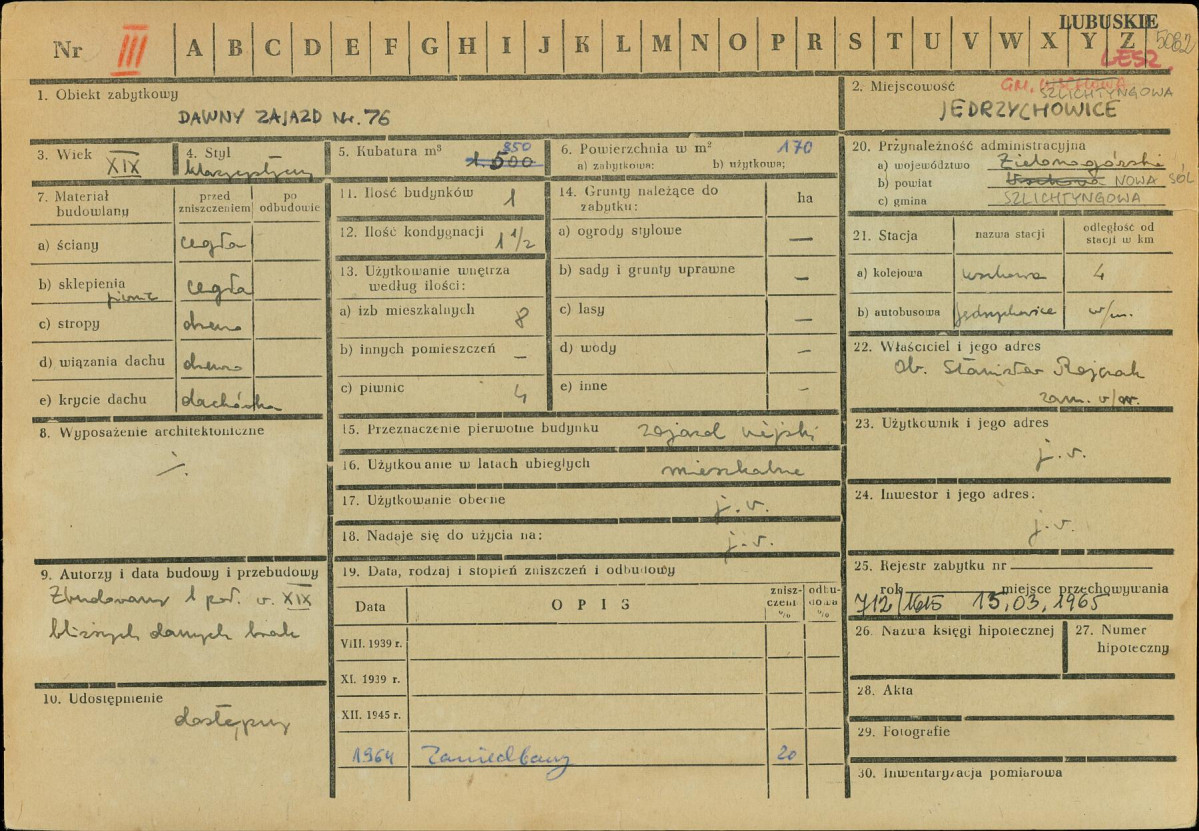 LUBUSKIE
Nr III A B C D E F G H I J K L M N O P R S T U V W X Y Z 5082
LESZ.
1. Obiekt zabytkowy
DAWNY ZAJAZD Nr. 76
2. Miejscowość GM. WSCHOWA
SZLICHTYNGOWA
JĘDRZYCHOWICE
3. Wiek XIX
4. Styl klasycystyczny
5. Kubatura m³ 850
1.500
6. Powierzchnia w m² 170
a) zabytkowa: b) użytkowa:
7. Materiał budowlany
przed zniszczeniem
po odbudowie
a) ściany cegła
b) sklepienia piwnic cegła
c) stropy drewno
d) wiązania dachu drewno
e) krycie dachu dachówka
8. Wyposażenie architektoniczne
9. Autorzy i data budowy i przebudowy
Zbudowany 1 poł. w. XIX
bliższych danych brak
10. Udostępnienie
dostępny
11. Ilość budynków 1
12. Ilość kondygnacji 1 1/2
13. Użytkowanie wnętrza
według ilości:
a) izb mieszkalnych 8
b) innych pomieszczeń –
c) piwnic 4
14. Grunty należące do
zabytku: ha
a) ogrody stylowe —
b) sady i grunty uprawne —
c) lasy —
d) wody —
e) inne –
15. Przeznaczenie pierwotne budynku zajazd wiejski
16. Użytkowanie w latach ubiegłych mieszkalne
17. Użytkowanie obecne j.w.
18. Nadaje się do użycia na: j.w.
19. Data, rodzaj i stopień zniszczeń i odbudowy
Data OPIS zniszczeń % odbudowa %
VIII. 1939 r.
XI. 1939 r.
XII. 1945 r.
1964 Zaniedbany 20
20. Przynależność administracyjna
a) województwo Zielonogórskie
b) powiat Wschowa NOWA SÓL
c) gmina SZLICHTYNGOWA
21. Stacja nazwa stacji odległość od stacji w km
a) kolejowa Wschowa 4
b) autobusowa Jędrzychowice w/m.
22. Właściciel i jego adres
Ob. Stanisław
zam. w/m.
23. Użytkownik i jego adres
j.w.
24. Inwestor i jego adres:
j.w.
25. Rejestr zabytku nr
rok miejsce przechowywania
712/1615 15,03,1965
26. Nazwa księgi hipotecznej
27. Numer hipoteczny
28. Akta
29. Fotografie
30. Inwentaryzacja pomiarowa